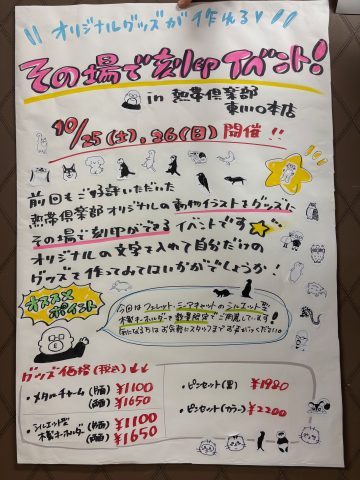 オリジナルグッズが作れる♡
その場で刻印イベント!
in 熱帯倶楽部
東川口本店
10/25(土)、26(日)開催!!
前回もご好評いただいた
熱帯倶楽部オリジナルの動物イラストをグッズに
その場で刻印ができるイベントです☆
オリジナルの文字を入れて自分だけの
グッズを作ってみてはいかがでしょうか!
オススメ
ポイント
今回はフェレット・ミーアキャットのシルエット型
木製キーホルダーを数量限定でご用意しています!
気になる方はお気軽にスタッフまでお声がけください。
グッズ価格(税込)↓↓
・メタルチャーム(片面)¥1100
(両面)¥1650
・シルエット型
木製キーホルダー
(片面)¥1100
(両面)¥1650
・ピンセット(黒)¥1980
・ピンセット(カラー)¥2200